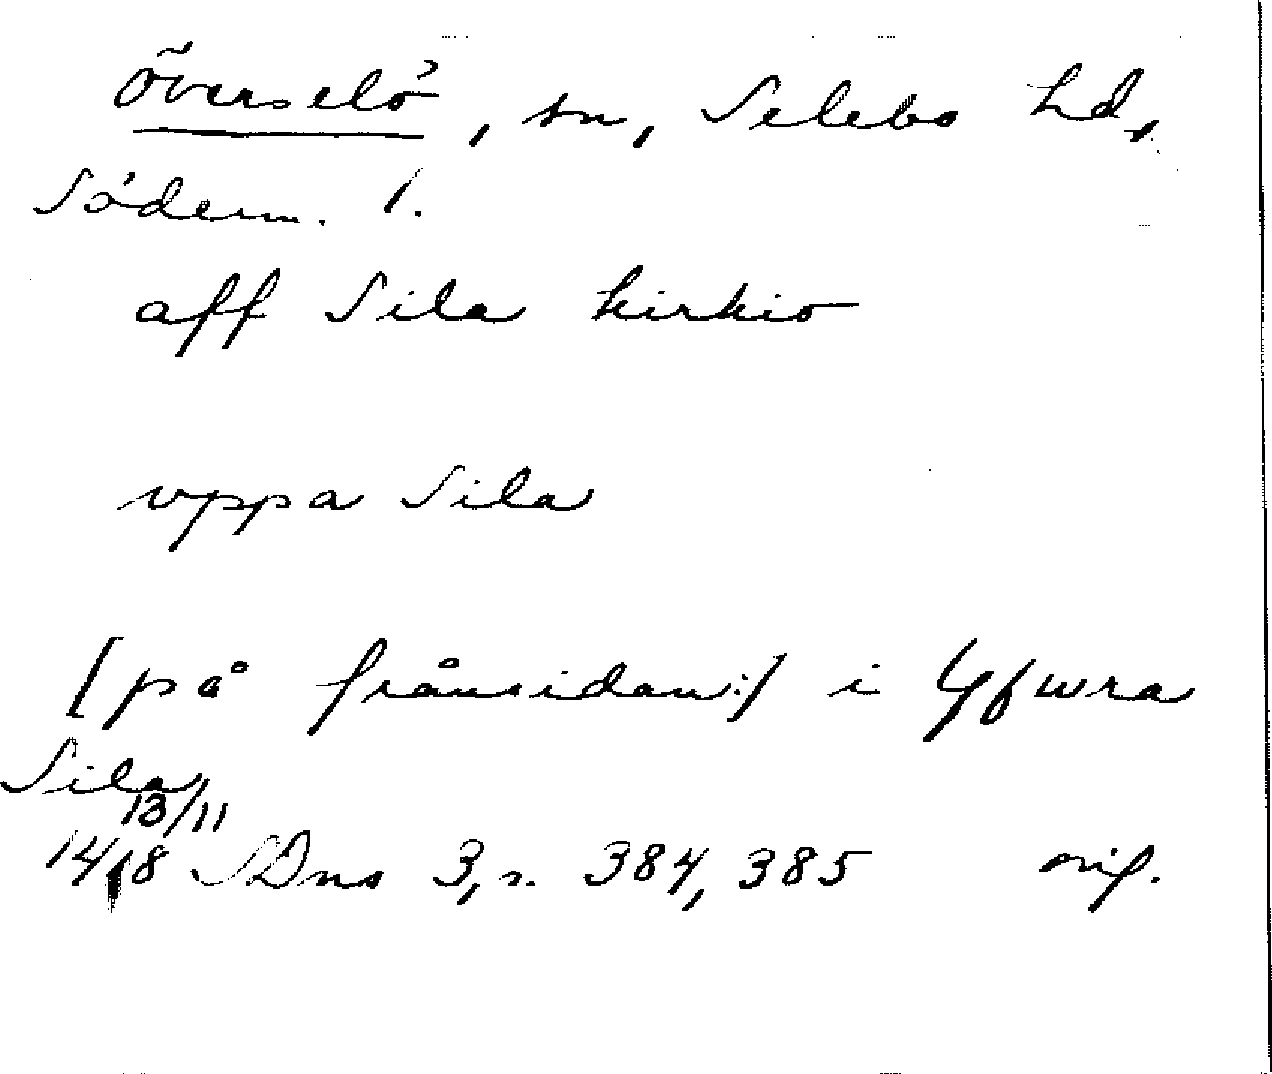 Överselö, sn, Selebo hd,
Söderm. l.
aff Sila kirkio
vppa Sila
[på frånsidan:] i Yfwra
Sila
13/11
1418 SDns 3, s. 384, 385 orig.